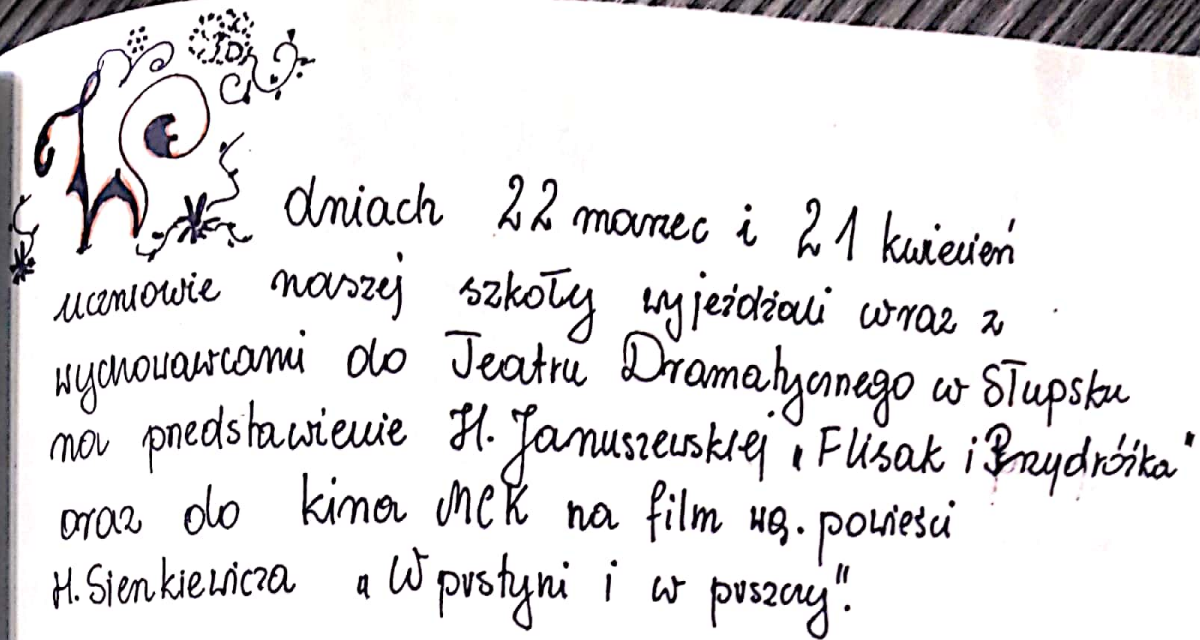 W dniach 22 marzec i 21 kwiecień
uczniowie naszej szkoły wyjeżdżali wraz z
wychowawcami do Teatru Dramatycznego w Słupsku
na przedstawienie H. Januszewskiej „Flisak i Przydróżka"
oraz do kina MCK na film wg. powieści
H. Sienkiewicza „W pustyni i w puszczy".